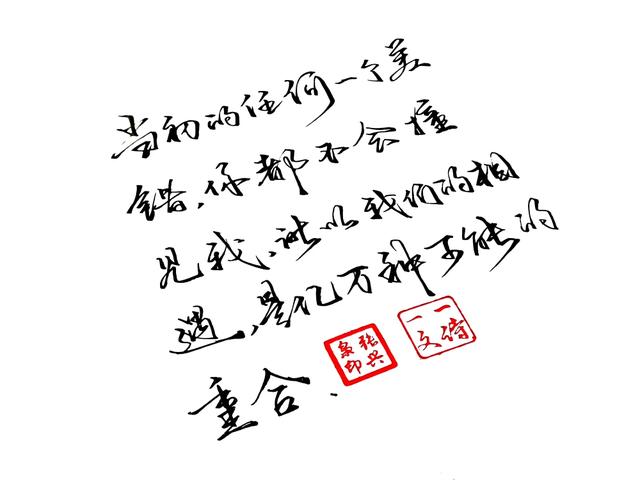 当初的任何一个差
错,你都不会撞
见我,所以我们的相
遇,是亿万种可能的
重合.
一诗一文
张兴泉印